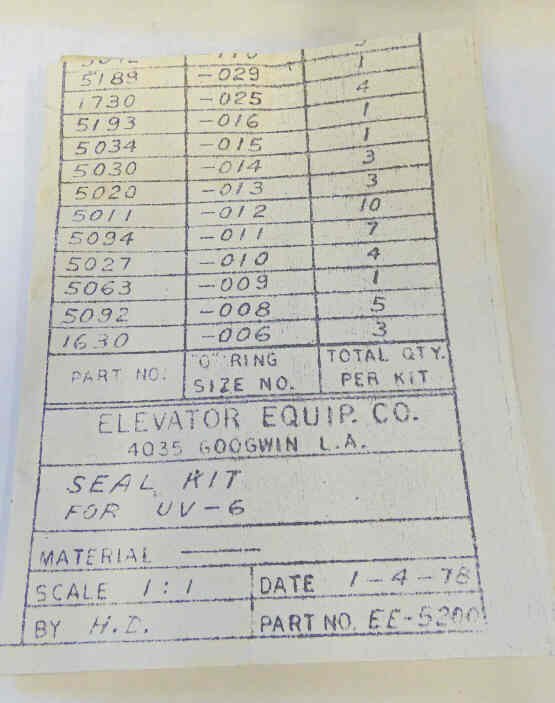 5189 -029 1
1730 -025 4
5193 -016 1
5034 -015 1
5030 -014 3
5020 -013 3
5011 -012 10
5094 -011 7
5027 -010 4
5063 -009 1
5092 -008 5
1630 -006 3
PART NO. "O" RING SIZE NO. TOTAL QTY. PER KIT
ELEVATOR EQUIP. CO.
4035 GOOGWIN L.A.
SEAL KIT
FOR UV-6
MATERIAL ———
SCALE 1:1 DATE 1-4-78
BY H.D. PART NO. EE-5200